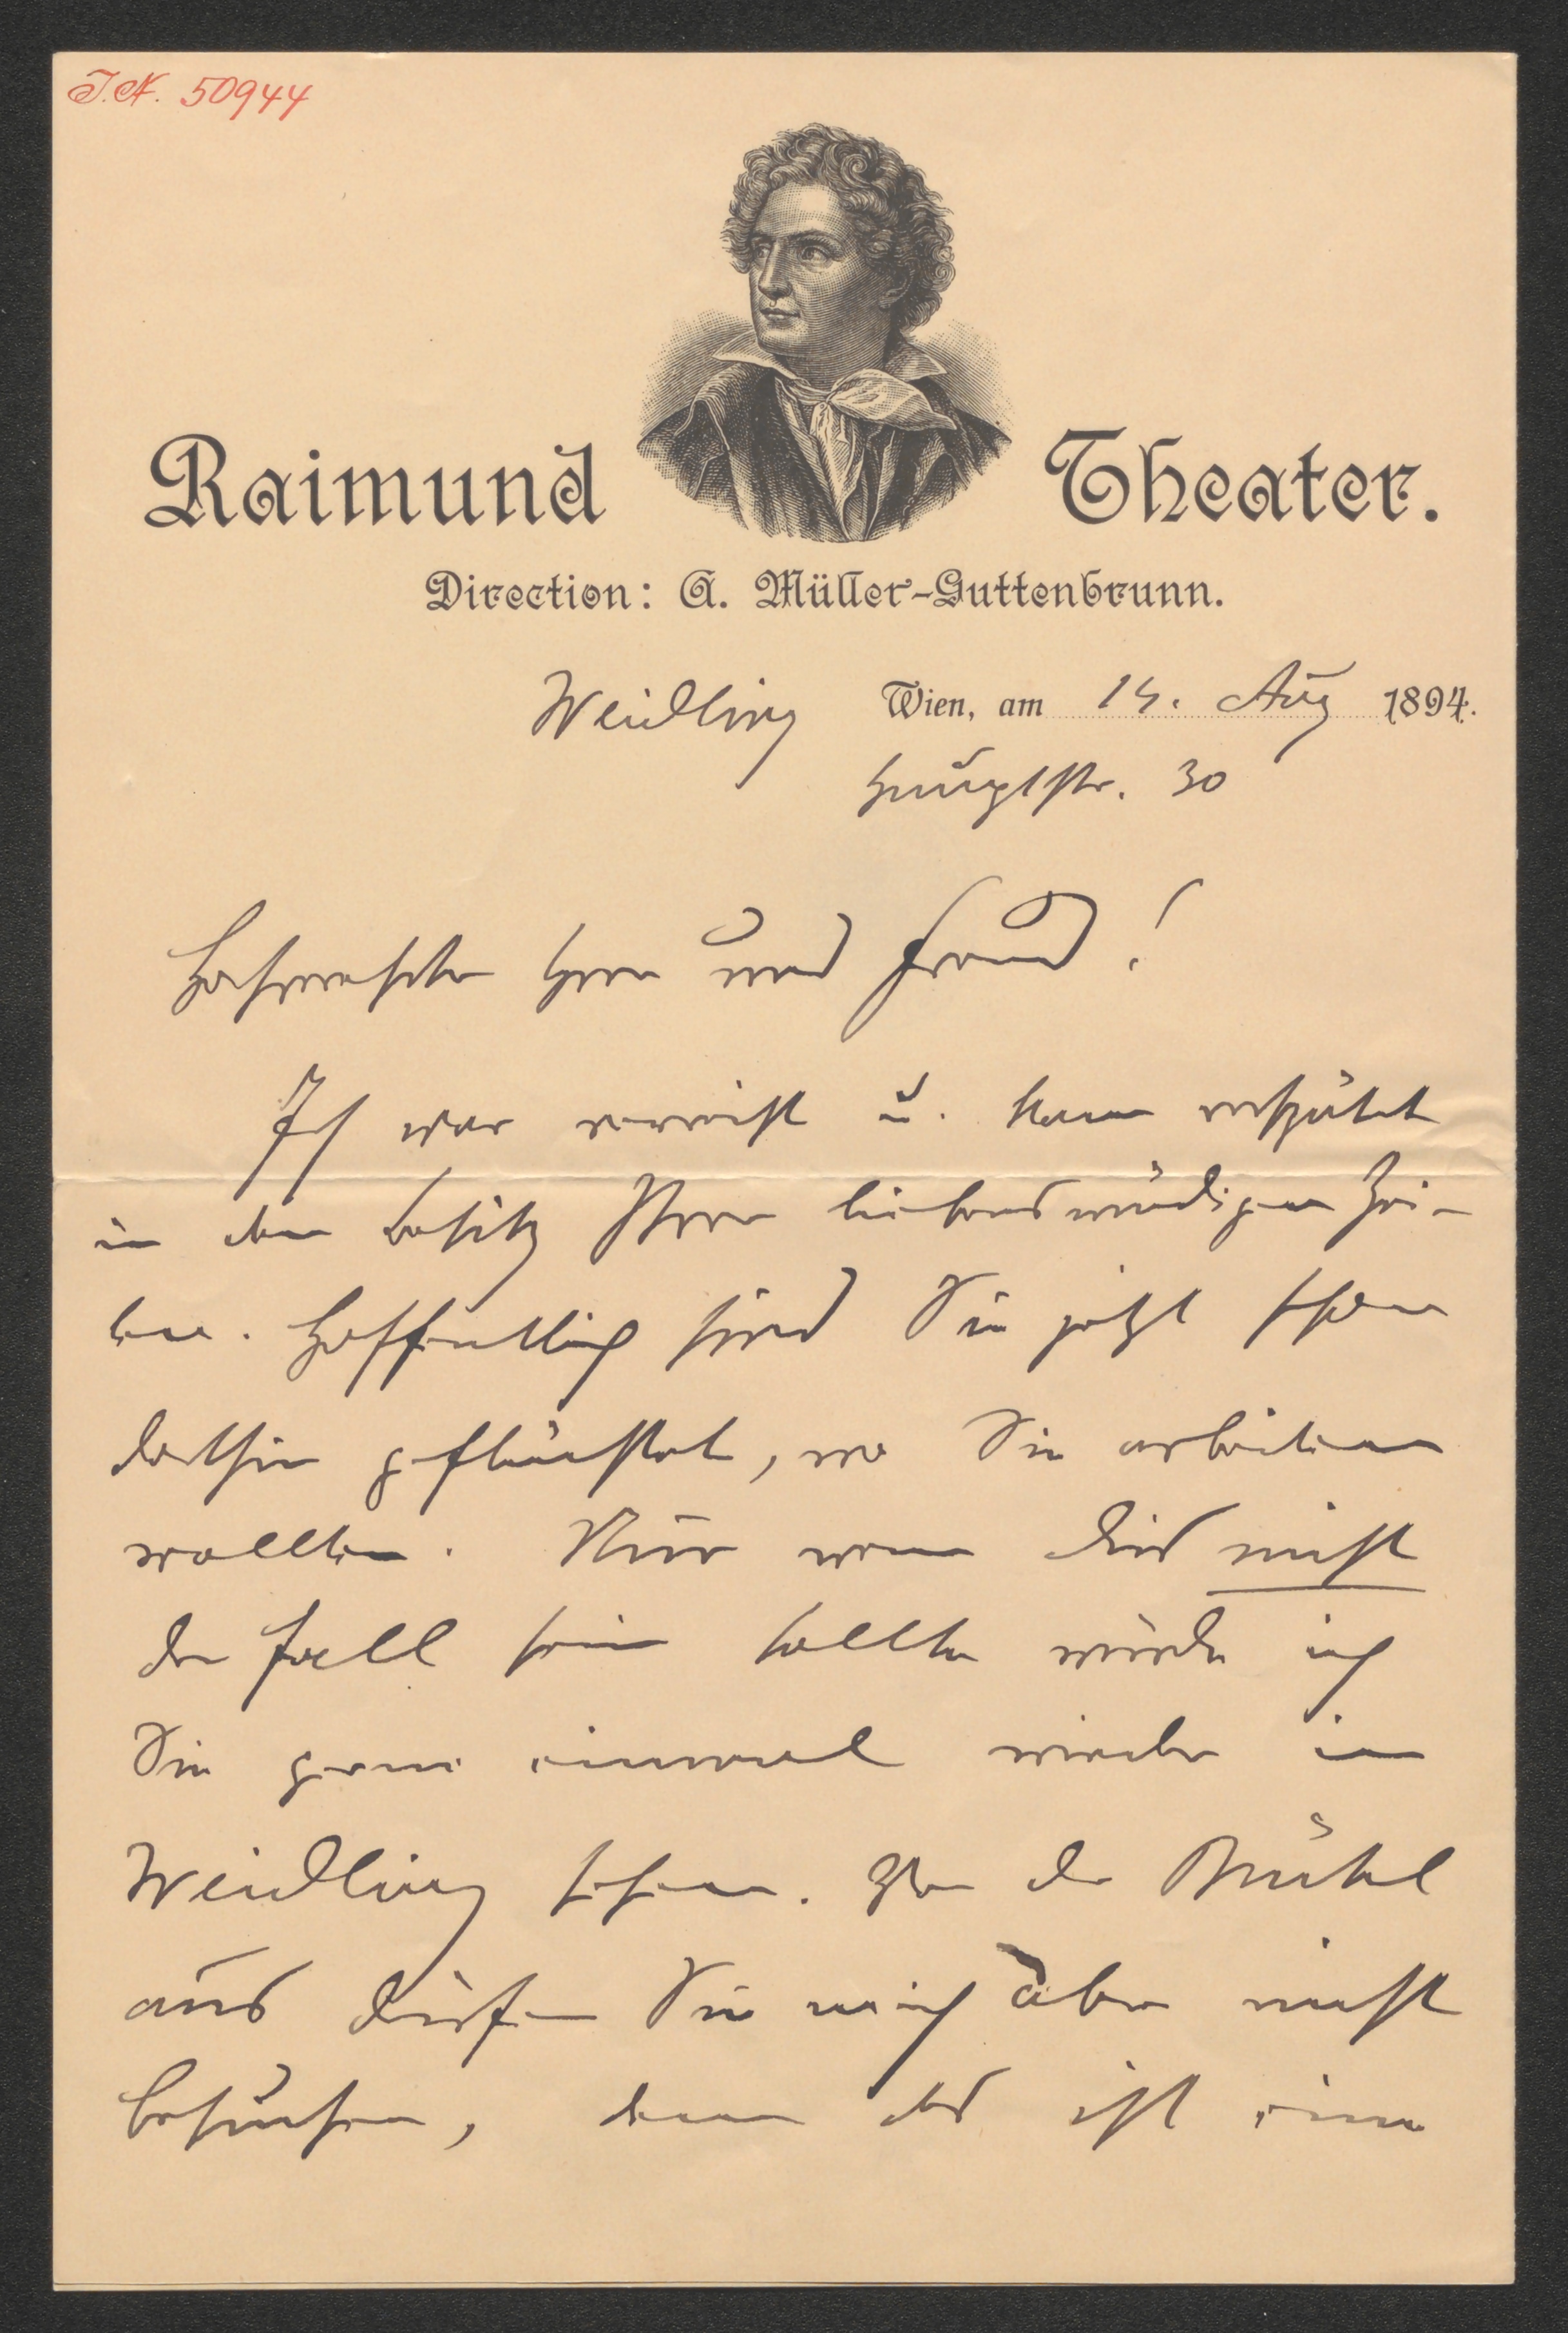 I.N. 50944
Raimund Theater.
Direction: A. Müller-Guttenbrunn.
Weidling Wien, am 14. Aug 1894.
Hauptstr. 30
Hochverehrter Herr und Freund!
Ich war verreist u. kam verspätet
in den Besitz Ihrer liebenswürdigen Zei-
len. Hoffentlich sind Sie jetzt schon
dorthin geflüchtet, wo Sie arbeiten
wollten. Nur wenn dies nicht
der Fall sein sollte würde ich
Sie gerne einmal wieder in
Weidling sehen. Von der Brühl
aus dürfen Sie mich aber nicht
besuchen, denn das ist eine